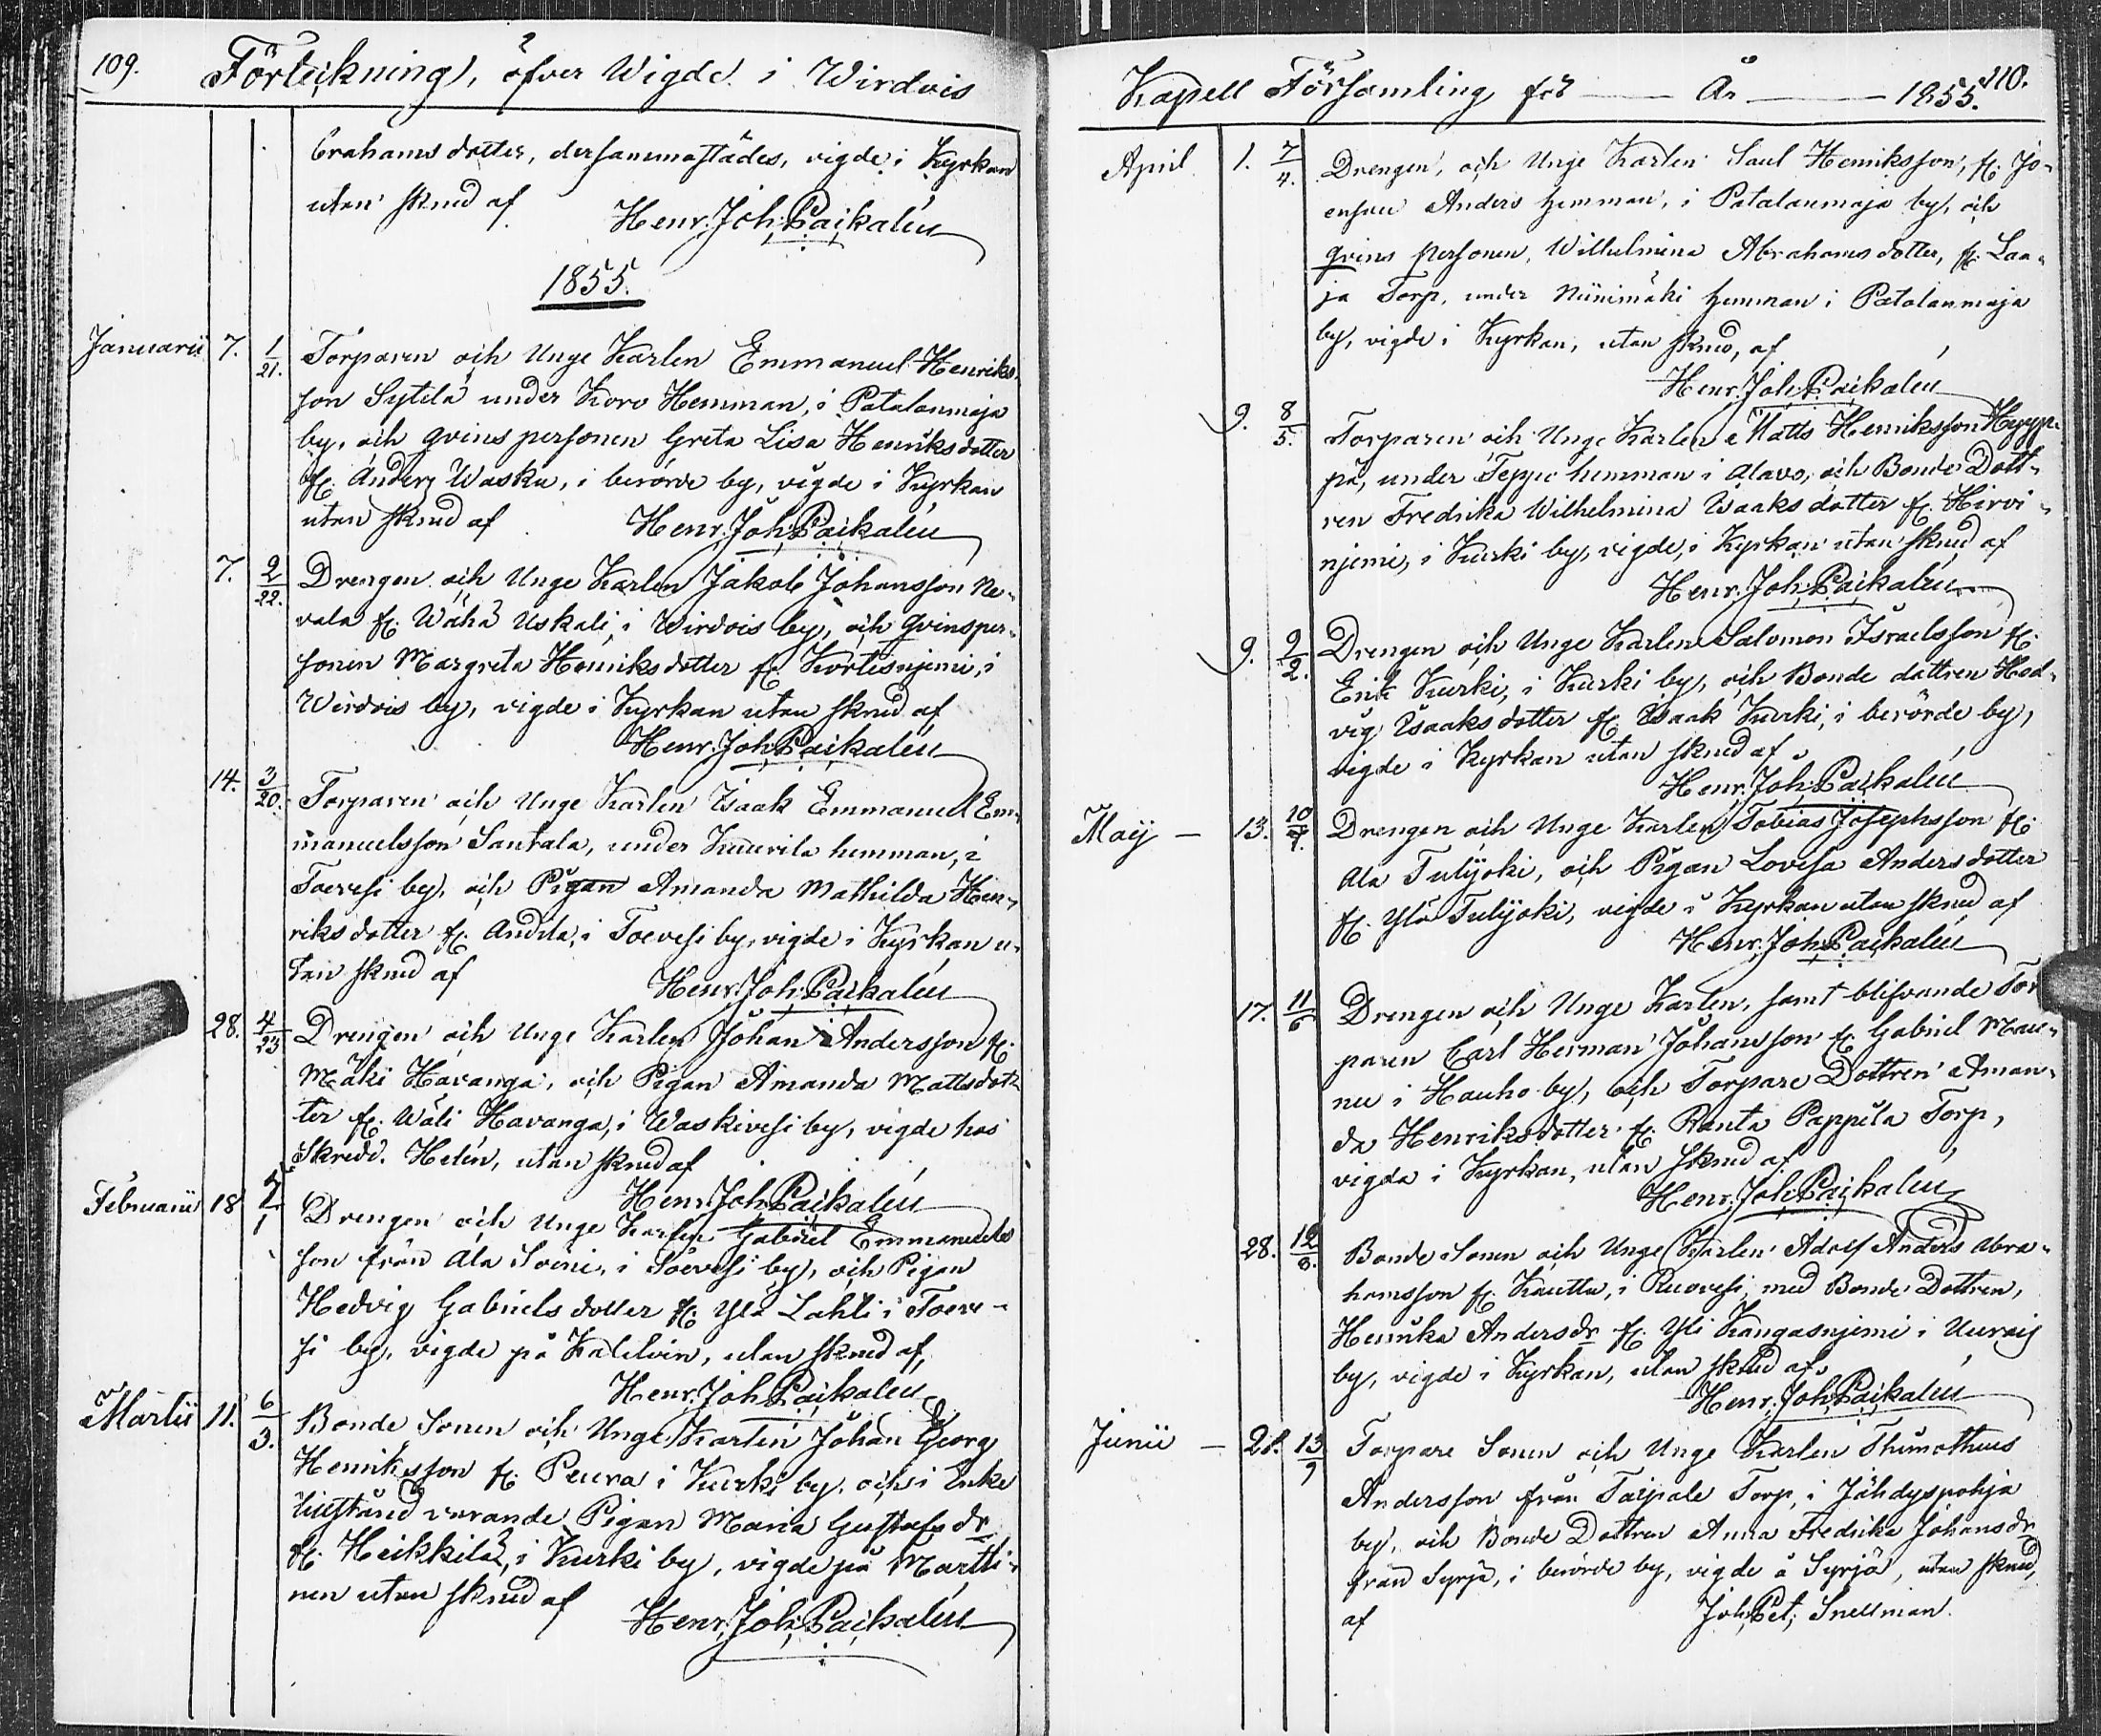 109. Förteckning, öfver Wigde i Wirdois
brahams dotter, dersammastädes, vigde i Kyrkan
utan skrud af
Henr. Joh. Paikalén
1855.
Januarii 7. 1/21. Torparen och Unge Karlen Emmanuel Henriks-
son Sytelä under Koro Hemman, i Patalanmaja
by, och qvins personen Greta Lisa Henriksdotter
fr. Anders Wasku, i berörde by, vigde i Kyrkan
utan skrud af Henr. Joh. Paikalén
7. 2/22. Drengen och Unge Karlen Jakob Johansson Ne-
vala fr. Wähä Uskali, i Wirdois by, och qvinsper-
sonen Margreta Henriksdotter fr. Kortesnjemi, i
Wirdois by, vigde i Kyrkan utan skrud af
Henr. Joh. Paikalén
14. 3/20. Torparen och Unge Karlen Isaak Emmanuel Em-
manuelsson Santala, under Kuurila hemman, i
Toevesi by, och Pigan Amanda Mathilda Hen-
riks dotter fr. Andila, i Toevesi by, vigde i Kyrkan u-
tan skrud af Henr. Joh. Paikalén
28. 4/23 Drengen och Unge Karlen Johan Andersson fr.
Mäki Havanga, och Pigan Amanda Mattsdot-
ter fr. Wäli Havanga, i Waskivesi by, vigde hos
Skredd. Helén, utan skrud af
Henr. Joh. Paikalén
Februarii 18 5/1 Drengen och Unge Karlen Gabriel Emmanuels
son från Ala Soini, i Toevesi by, och Pigan
Hedvig Gabriels dotter fr. Ylä Lahti i Toeve-
si by, vigde på Kalelvin, utan skrud af,
Henr. Joh. Paikalén
Martii 11. 6/3. Bonde Sonen och Unge Karlen Johan Georg
Henriksson fr. Peura i Kurki by, och i Enke
tillstånd varande Pigan Maria Gustafs dr
fr. Heikkilä, i Kurki by, vigde på Martti-
nen utan skrud af
Henr. Joh. Paikalén
Kapell Församling för År 1855. 110.
April 1. 7/4. Drengen, och Unge Karlen Saul Henriksson, fr. Jo-
ensuu Anders hemman, i Patalanmaja by, och
qvins personen, Wilhelmina Abrahams dotter, fr. Laa-
ja Torp, under Niinimäki hemman i Patalanmaja
by, vigde i Kyrkan, utan skrud, af
Henr. Joh. Paikalén
9. 8/5. Torparen och Unge Karlen Matts Henriksson Hyyp-
pä, under Teppo hemman i Alavo, och Bonde Dott-
ren Fredrika Wilhelmina Isaaks dotter fr. Hirvi-
njemi, i Kurki by, vigde, i Kyrkan utan skrud af
Henr. Joh. Paikalén
9. 9/2. Drengen och Unge Karlen Salomon Israelsson fr.
Erik Kurki, i Kurki by, och Bonde dottren Hed-
vig Isaaks dotter fr. Isaak Kurki, i berörde by,
vigde i Kyrkan utan skrud af
Henr. Joh. Paikalén
Maij 13. 10/7. Drengen och Unge Karlen Tobias Josephsson fr.
Ala Tulijoki, och Pigan Lovisa Anders dotter
fr. Ylä Tulijoki, vigde i Kyrkan utan skrud af
Henr. Joh. Paikalén
17. 11/6 Drengen och Unge Karlen, samt blifvande Tor
paren Carl Herman Johansson fr. Gabriel Mau-
nu i Hauho by, och Torpare Dottren Aman-
da Henriksdotter fr. Ranta Pappila Torp,
vigda i Kyrkan, utan skrud af
Henr. Joh. Paikalén
28. 12/8. Bonde Sonen och Unge Karlen Adolf Anders Abra-
hamsson fr. Kautta, i Ruovesi, med Bonde Dottren,
Henrika Anders dr fr. Yli Kangasnjemi i Uurasj
by, vigde i Kyrkan, utan skrud af
Henr. Joh. Paikalén
Junii 21. 13/9 Torpare Sonen och Unge Karlen Thimotheus
Andersson från Taipale Torp, i Jähdyspohja
by, och Bonde Dottren Anna Fredrika Johans dr
från Syrjä, i berörde by, vigde å Syrjä, utan skrud,
af Joh. Pet. Snellman.